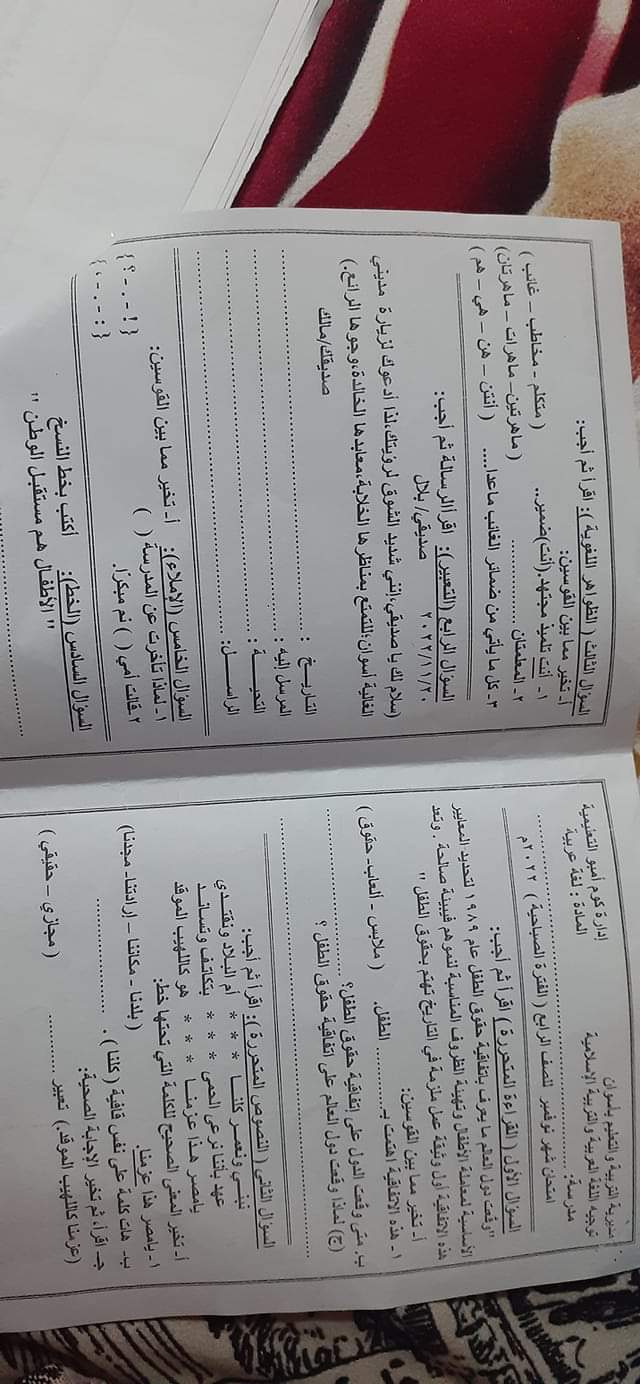 مديرية التربية والتعليم بأسوان
توجيه اللغة العربية والتربية الإسلامية
إدارة كوم أمبو التعليمية
المادة : لغة عربية
مدرسة: ........................
امتحان شهر نوفمبر للصف الرابع ( الفترة الصباحية ) ٢٠٢٢م
السؤال الأول ( القراءة المتحررة ) اقرأ ثم أجب:
"وقعت دول العالم ما يعرف باتفاقية حقوق الطفل عام ١٩٨٩ لتحديد المعايير
الأساسية لمعاملة الأطفال وتهيئة الظروف المناسبة لنموهم فى بيئة صالحة . وتعد
هذه الاتفاقية أول وثيقة عمل ملزمة في التاريخ تهتم بحقوق الطفل "
أ- تخير مما بين القوسين:
١- هذه الاتفاقية اهتمت بـ ............ الطفل. ( ملابس - ألعاب- حقوق )
ب. متى وقعت الدول على إتفاقية حقوق الطفل؟ ........................
(ج) لماذا وقعت دول العالم على اتفاقية حقوق الطفل ؟
........................
السؤال الثاني ( النصوص المتحررة ): اقرأ ثم أجب:
نبني ونعمر كلنا * * * أم البلاد ونفتدي
عهد بأننا نرعى الحمى * * * بتكاتف وتساند
يامصر هذا عزمنا * * * هو كاللهيب الموقد
أ - تخير المعنى الصحيح للكلمة التي تحتها خط:
١ - يامصر هذا عزمنا. ( بلدنا - مكاننا - إرادتنا- مجدنا)
ب- هات كلمة على نفس قافية ( كلنا ) . ............
جـ- اقرأ، ثم تخير الإجابة الصحيحة:
(عزمنا كاللهيب الموقد.) تعبير ............ ( مجازي - حقيقي )
السؤال الثالث ( الظواهر اللغوية ): اقرأ ثم أجب:
أ- تخير مما بين القوسين:
١- أنت تلميذ مجتهد.(أنت)ضمير.. ( متكلم - مخاطب - غائب )
٢- المعلمتان ............ ( ماهرتين- ماهرات - ماهرتان)
٣- كل ما يأتي من ضمائر الغائب ماعدا.... ( أنتن - هن - هي - هم )
السؤال الرابع (التعبير): اقرأ الرسالة ثم أجب:
٢٠٢٢/١١/٢٠ صديقي/ بلال
(سلام لك يا صديقي،إنني شديد الشوق لرؤيتك،لذا أدعوك لزيارة مدينتي
الغالية أسوان،للتمتع بمناظرها الخلابة،معابدها الخالدة،وجوها الرائع.)
صديقك/مالك
التاريخ : ........................
المرسل إليه : ........................
التحية : ........................
الراسل: ........................
السؤال الخامس (الإملاء): أ- تخير مما بين القوسين:
١- لماذا تأخرت عن المدرسة ( ) { ؟ - . - ! }
٢-قالت أمي ( ) نم مبكرًا. { : - . - ، }
السؤال السادس (الخط): أكتب بخط النسخ
" الأطفال هم مستقبل الوطن "
........................